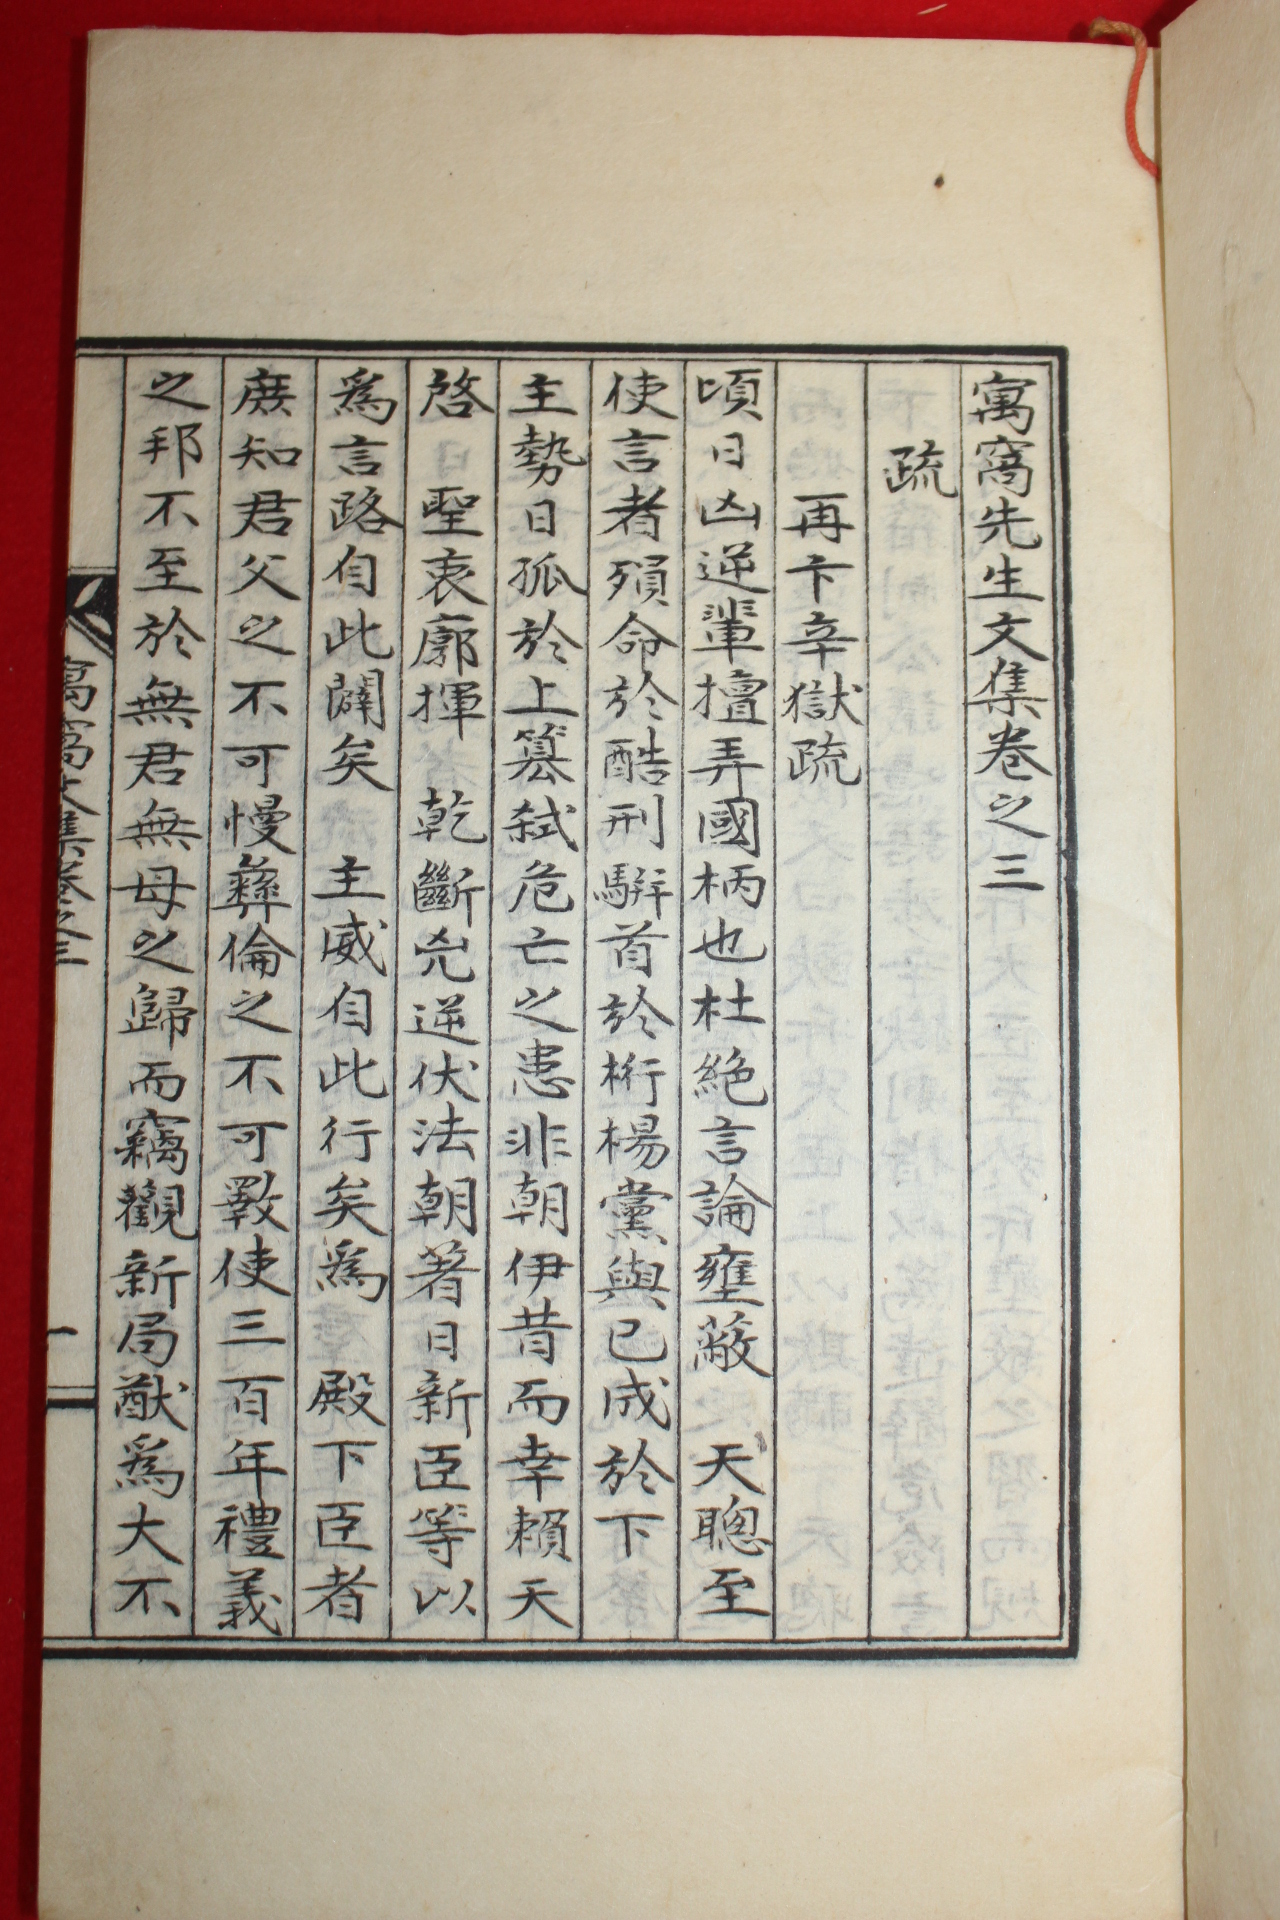 寓窩先生文集卷之三
疏
再卞辛獄疏
頃日凶逆輩擅弄國柄也杜絶言論壅蔽 天聰至
使言者殞命於酷刑騈首於桁楊黨與已成於下
主勢日孤於上簒弑危亡之患非朝伊昔而幸賴天
啓 聖衷廓揮 乾斷兇逆伏法朝著日新臣等以
爲言路自此闢矣 主威自此行矣爲 殿下臣者
庶知君父之不可慢彛倫之不可斁使三百年禮義
之邦不至於無君無母之歸而竊觀新局猷爲大不
寓窩文集卷之三
一